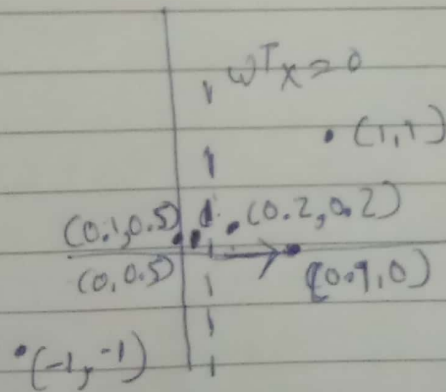 ωᵀx = 0
(1,1)
(0.1,0.5) (0.2,0.2)
(0,0.5) (0.9,0)
(-1,-1)